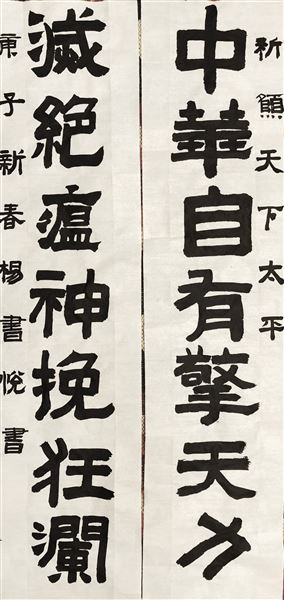 祈願天下太平
中華自有擎天力
滅絕瘟神挽狂瀾
庚子新春楊書悦書